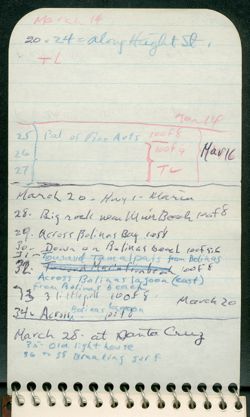 March 14
20-24 = along Height St.
TL
Mar 14
25 Pal of Fine Arts 100 f 8
26 100 f 9 Mar 16
27 TL
March 20 - Hwy 1 - Marin
28 - Big rock near Muir Beach 100 f 8
29. Across Bolinas Bay
30 - Down on Bolinas
31 - Toward Tamalpais from Bolinas
32 - 100 f 8
Across Bolinas lagoon (east)
from Bolinas beach
33 100 f 8 March 20
34 - Across Bolinas lagoon
March 28 - at Santa Cruz
35 - Old light house
36 to 38 Breaking surf